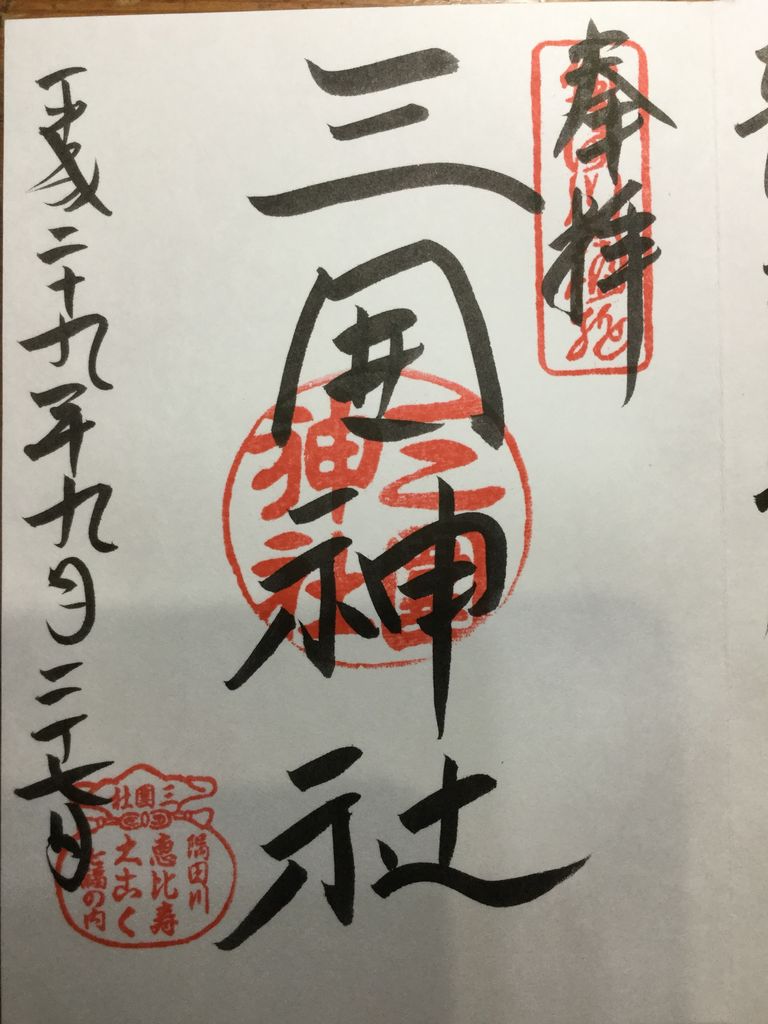 奉拝
三囲神社
三圍神社
平成二十九年九月二十七日
三圍社
隅田川
恵比寿
大こく
七福の内